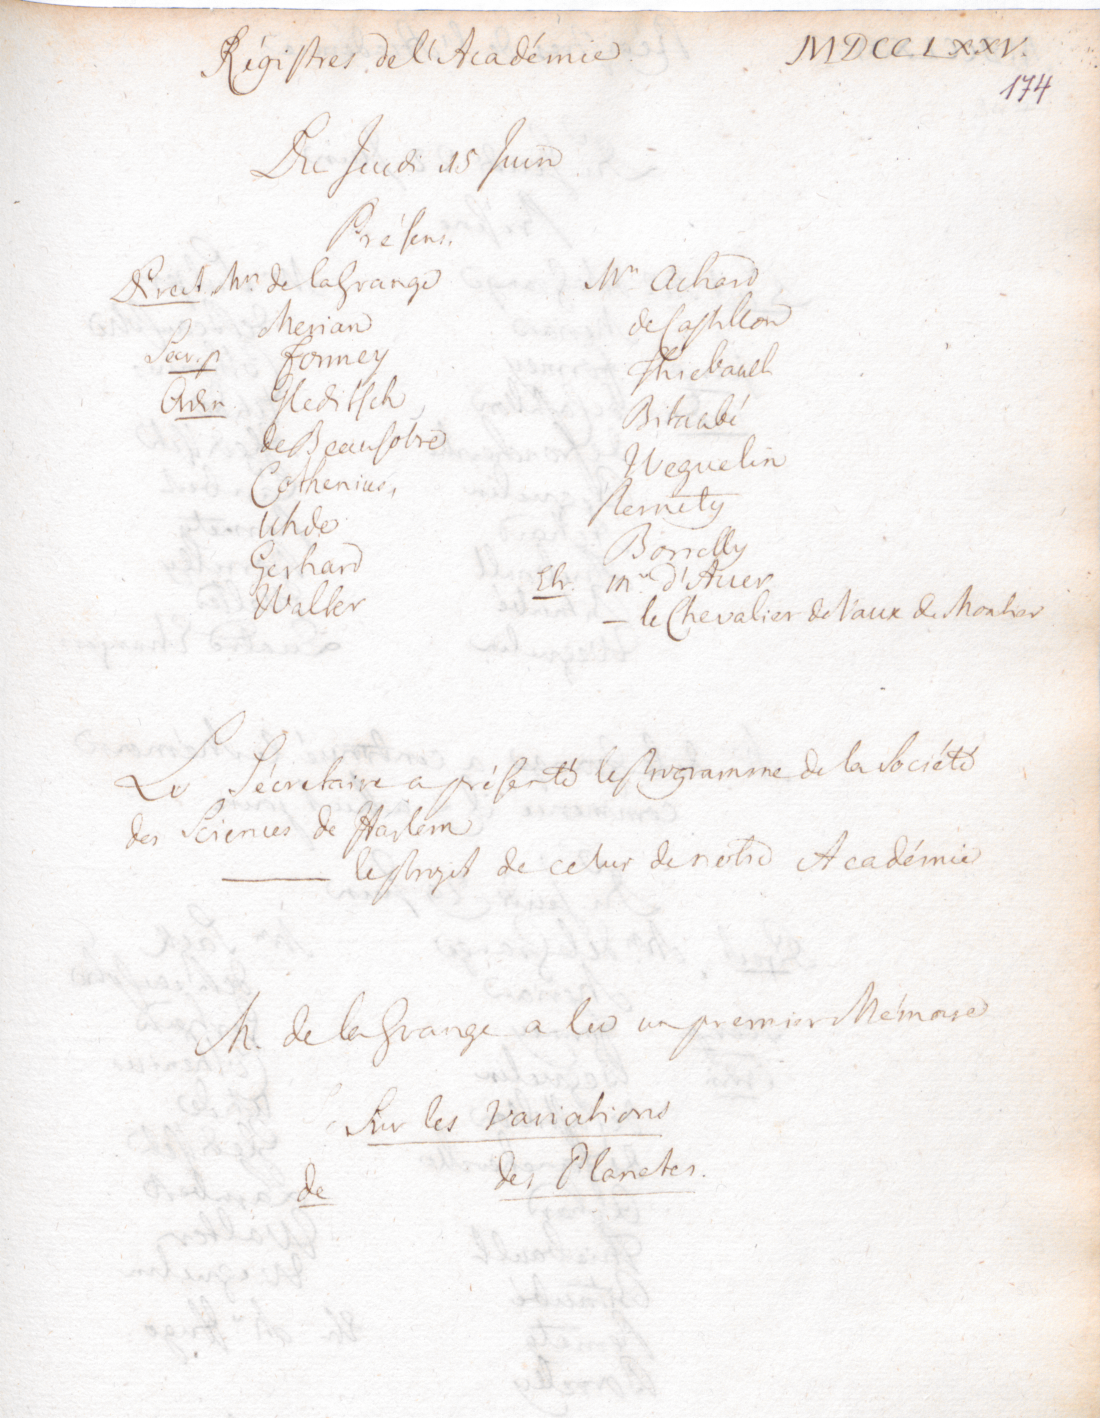 Régistres de l'Académie. MDCCLXXV.
174
Du Jeudi 15 Juin.
Présens.
Direct. Mrs de la Grange
Merian
Secr. p. Formey
Ordin. Gleditsch
de Beausobre
Cothenius,
Uhde
Gerhard
Walter
Mrs Achard
de Castillon
Thiebault
Bitaubé
Weguelin
Pernety
Borrelly
Etr. Mrs d'Auer
— le Chevalier de Vaux de
Le Sécretaire a présenté le Programme de la Société
des Sciences de Harlem
——— le Projet de celui de notre Académie
M. de la Grange a lu un premier Mémoire
Sur les Variations
de des Planetes.